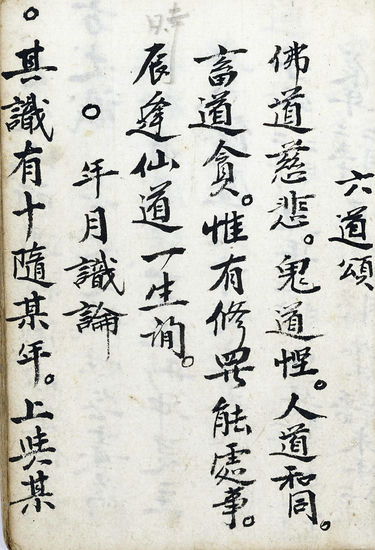 六道頌
佛道慈悲。鬼道悭。人道和同。
畜道貪。惟有修罗能處事。
時
辰逢仙道一生詢。
。年月識論
。其識有十隨某年。上與某